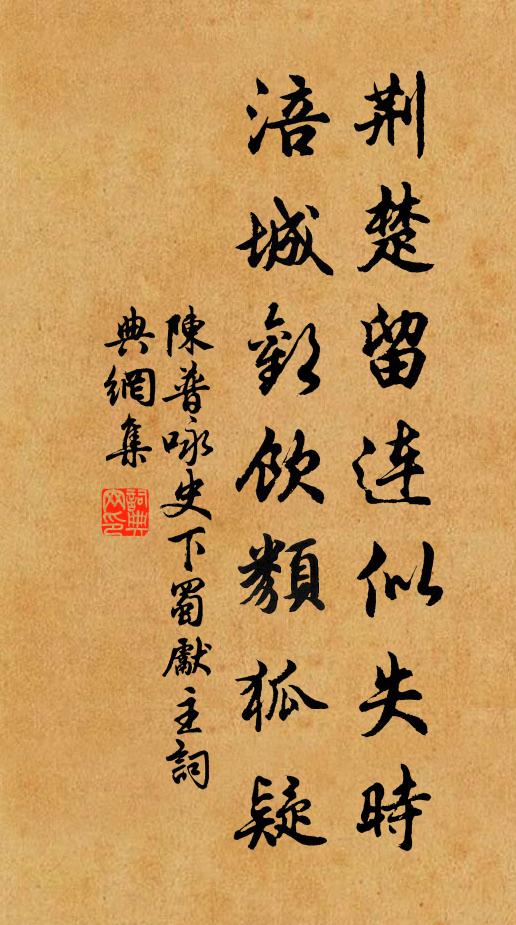 荆楚留連似失時
涪城歡飲類狐疑
陳普咏史下蜀獻主詞
典網集
詞典網印